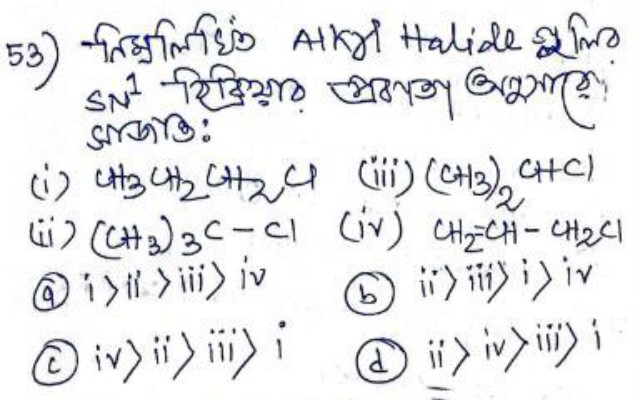 53) নিম্নলিখিত Alkyl Halide গুলির
SN¹ বিক্রিয়ার প্রবণতা অনুসারে
সাজাও:
(i) CH3CH2CH2Cl (iii) (CH3)2CHCl
(ii) (CH3)3C-Cl (iv) CH2=CH-CH2Cl
ⓐ i > ii > iii > iv ⓑ ii > iii > i > iv
ⓒ iv > ii > iii > i ⓓ ii > iv > iii > i